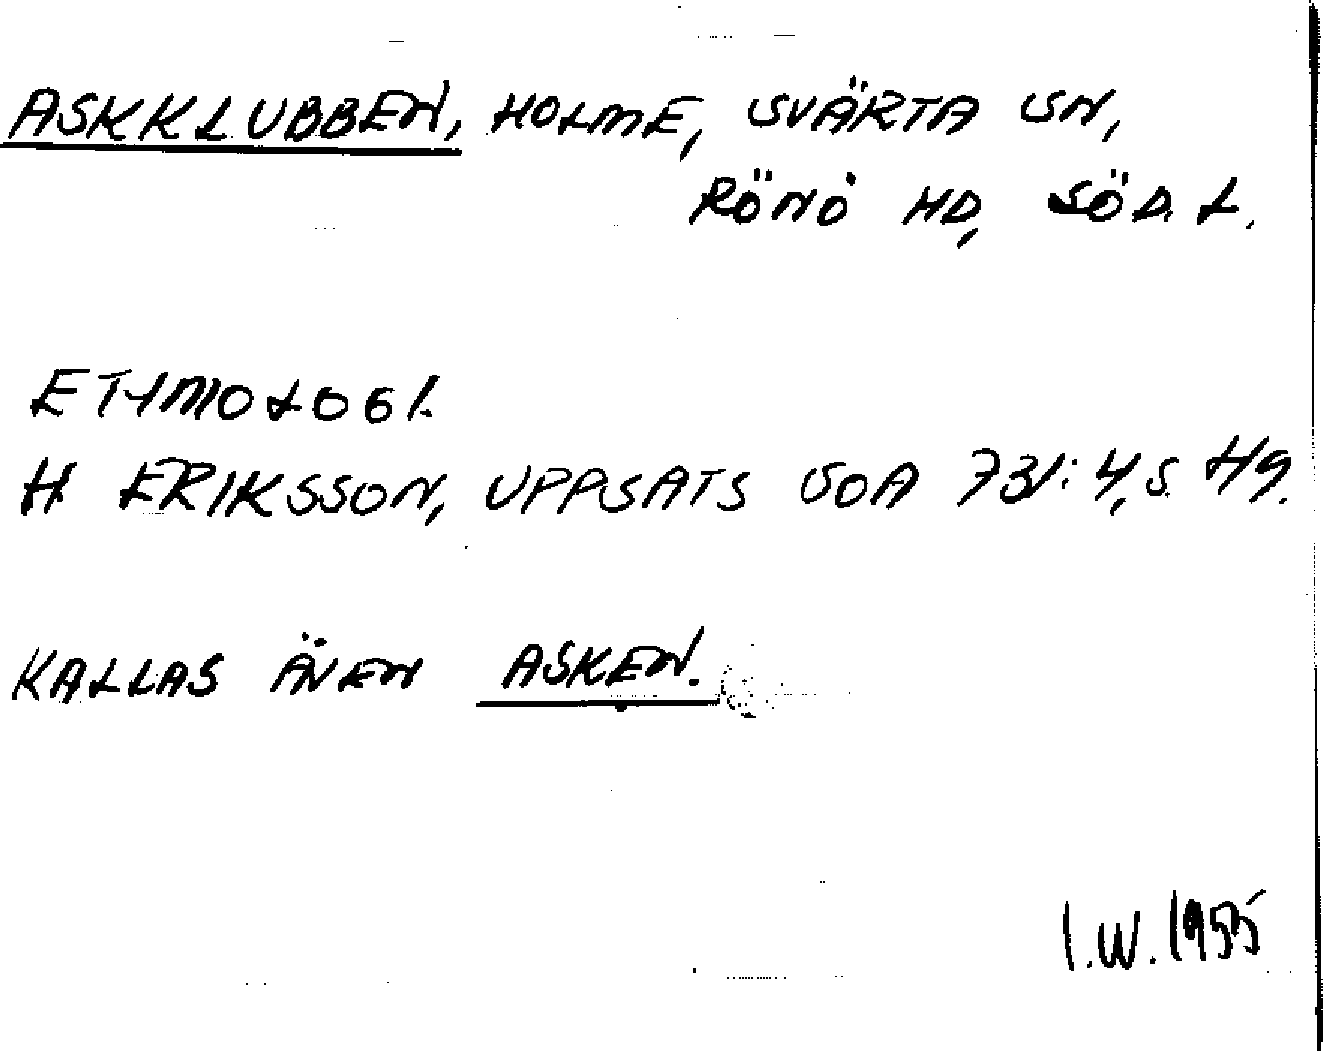 ASKKLUBBEN, HOLME, SVÄRTA SN,
RÖNÖ HD, SÖD. L.
ETYMOLOGI.
H ERIKSSON, UPPSATS SOA 731:4, S. 49.
KALLAS ÄVEN ASKEN.
I.W. 1955